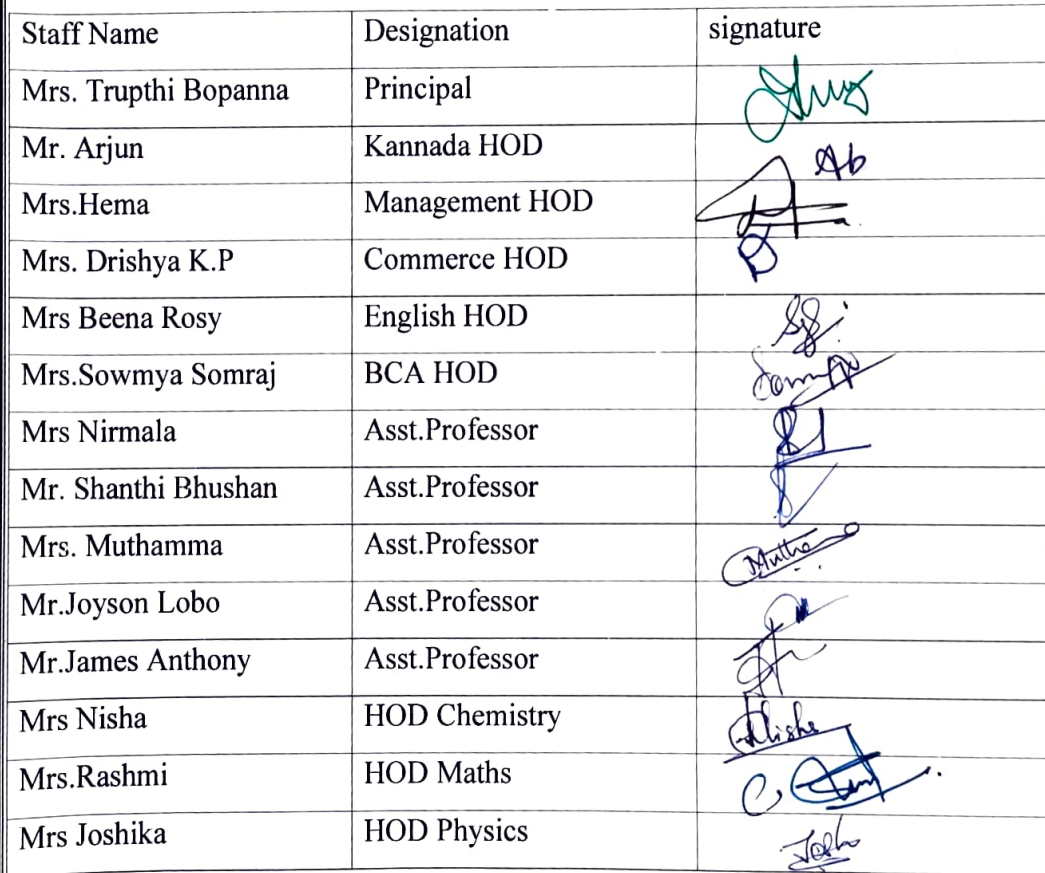 Staff Name Designation signature
Mrs. Trupthi Bopanna Principal
Mr. Arjun Kannada HOD Ab
Mrs.Hema Management HOD
Mrs. Drishya K.P Commerce HOD
Mrs Beena Rosy English HOD
Mrs.Sowmya Somraj BCA HOD
Mrs Nirmala Asst.Professor
Mr. Shanthi Bhushan Asst.Professor
Mrs. Muthamma Asst.Professor
Mr.Joyson Lobo Asst.Professor
Mr.James Anthony Asst.Professor
Mrs Nisha HOD Chemistry
Mrs.Rashmi HOD Maths
Mrs Joshika HOD Physics